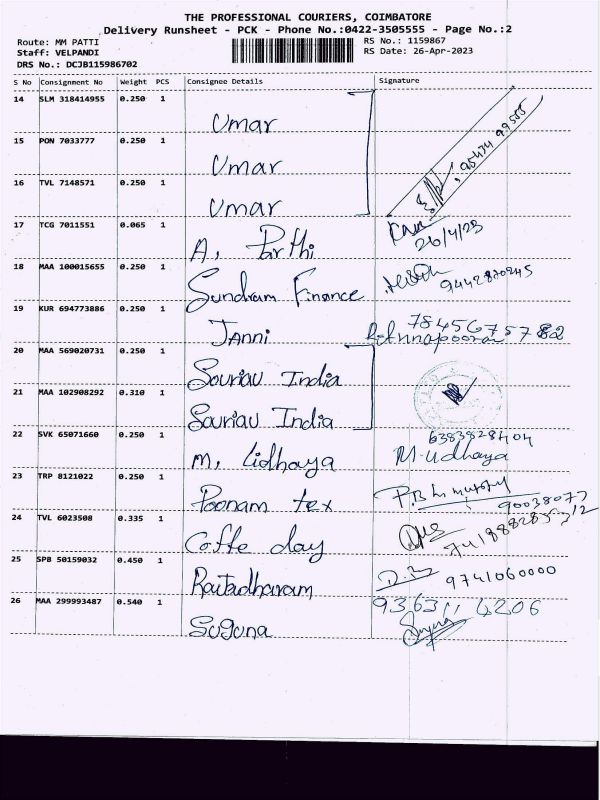 THE PROFESSIONAL COURIERS, COIMBATORE
Delivery Runsheet - PCK - Phone No.:0422-3505555 - Page No.:2
Route: MM PATTI
Staff: VELPANDI
DRS No.: DCJB115986702
RS No.: 1159867
RS Date: 26-Apr-2023
S No Consignment No Weight PCS Consignee Details Signature
14 SLM 318414955 0.250 1 Umar
15 PON 7033777 0.250 1 Umar
16 TVL 7148571 0.250 1 Umar
17 TCG 7011551 0.065 1 A, Parthi 26/4/23
18 MAA 100015655 0.250 1 Sundram Finance
19 KUR 694773886 0.250 1 Janni
20 MAA 569020731 0.250 1 Souriau India
21 MAA 102908292 0.310 1 Souriau India
22 SVK 65071660 0.250 1 M, Udhaya 6383828404 M.udhaya
23 TRP 8121022 0.250 1 Poonam tex
24 TVL 6023508 0.335 1 Coffe day
25 SPB 50159032 0.450 1 9741060000
26 MAA 299993487 0.540 1 Suguna